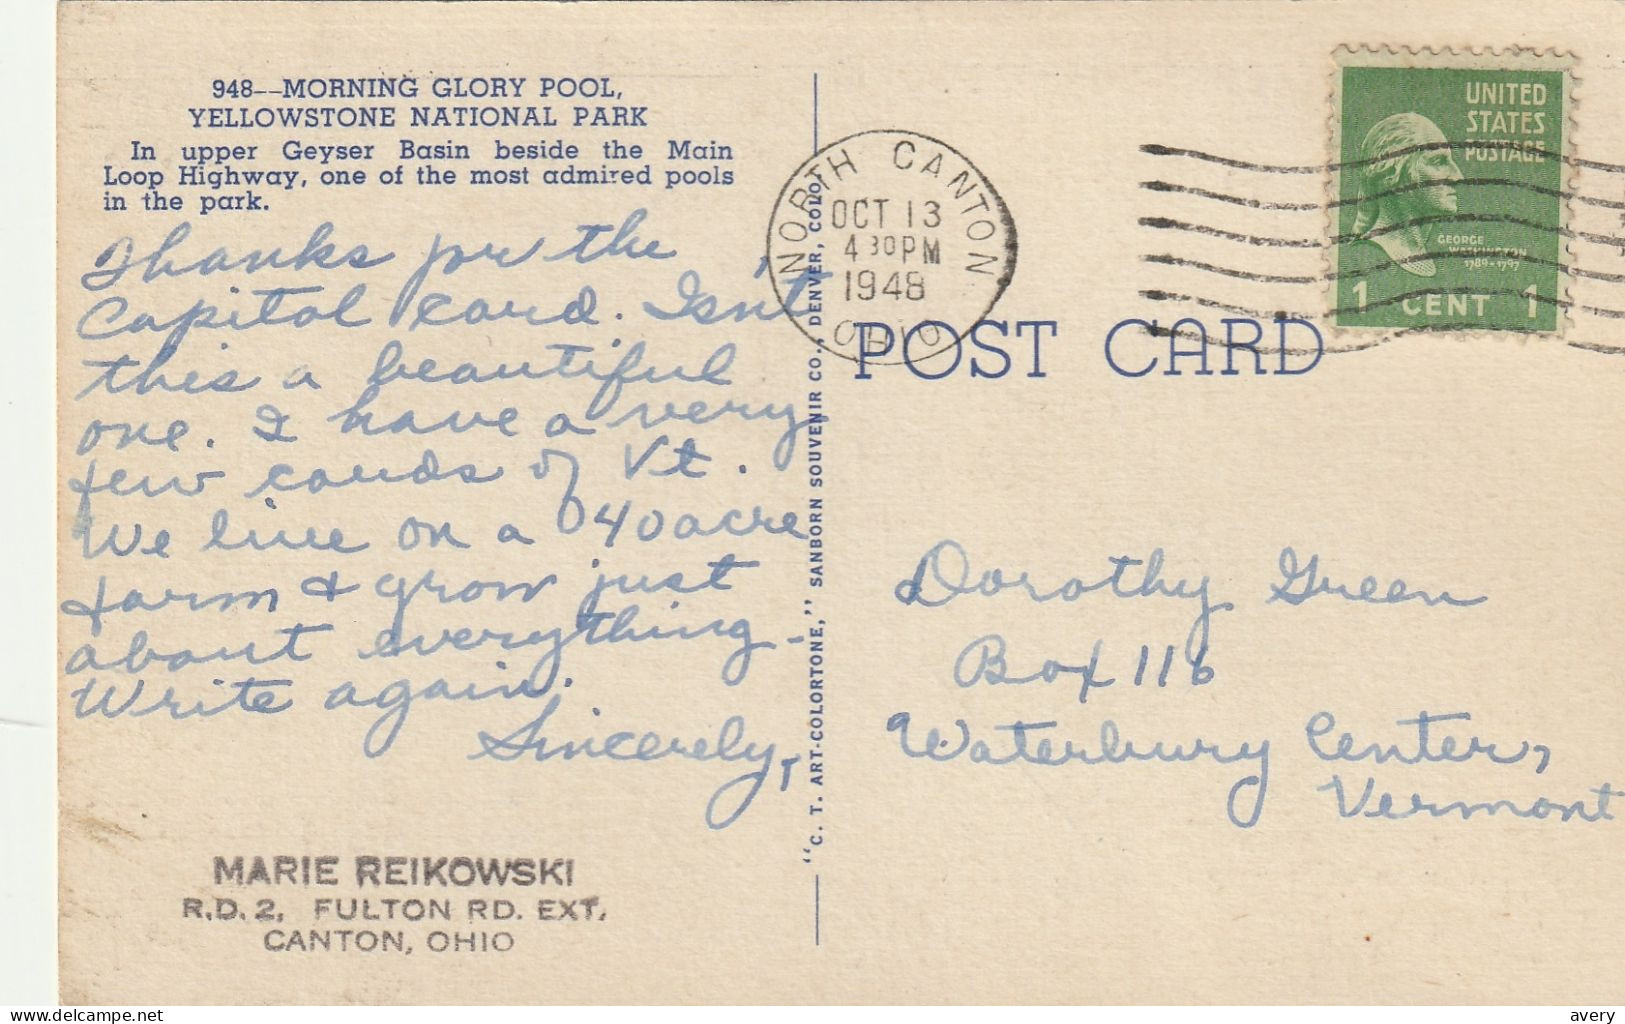 948--MORNING GLORY POOL,
YELLOWSTONE NATIONAL PARK
In upper Geyser Basin beside the Main
Loop Highway, one of the most admired pools
in the park.
Thanks for the
Capitol card. Isn't
this a beautiful
one. I have a very
few cards of Vt.
We live on a 40 acre
farm & grow just
about everything -
Write again.
Sincerely,
MARIE REIKOWSKI
R.D. 2, FULTON RD. EXT.
CANTON, OHIO
"C. T. ART-COLORTONE," SANBORN SOUVENIR CO., DENVER, COLO.
NORTH CANTON
OCT 13
4 30 PM
1948
OHIO
UNITED
STATES
POSTAGE
GEORGE
WASHINGTON
1789-1797
1 CENT 1
POST CARD
Dorothy Green
Box 116
Waterbury Center,
Vermont
delcampe.net
avery